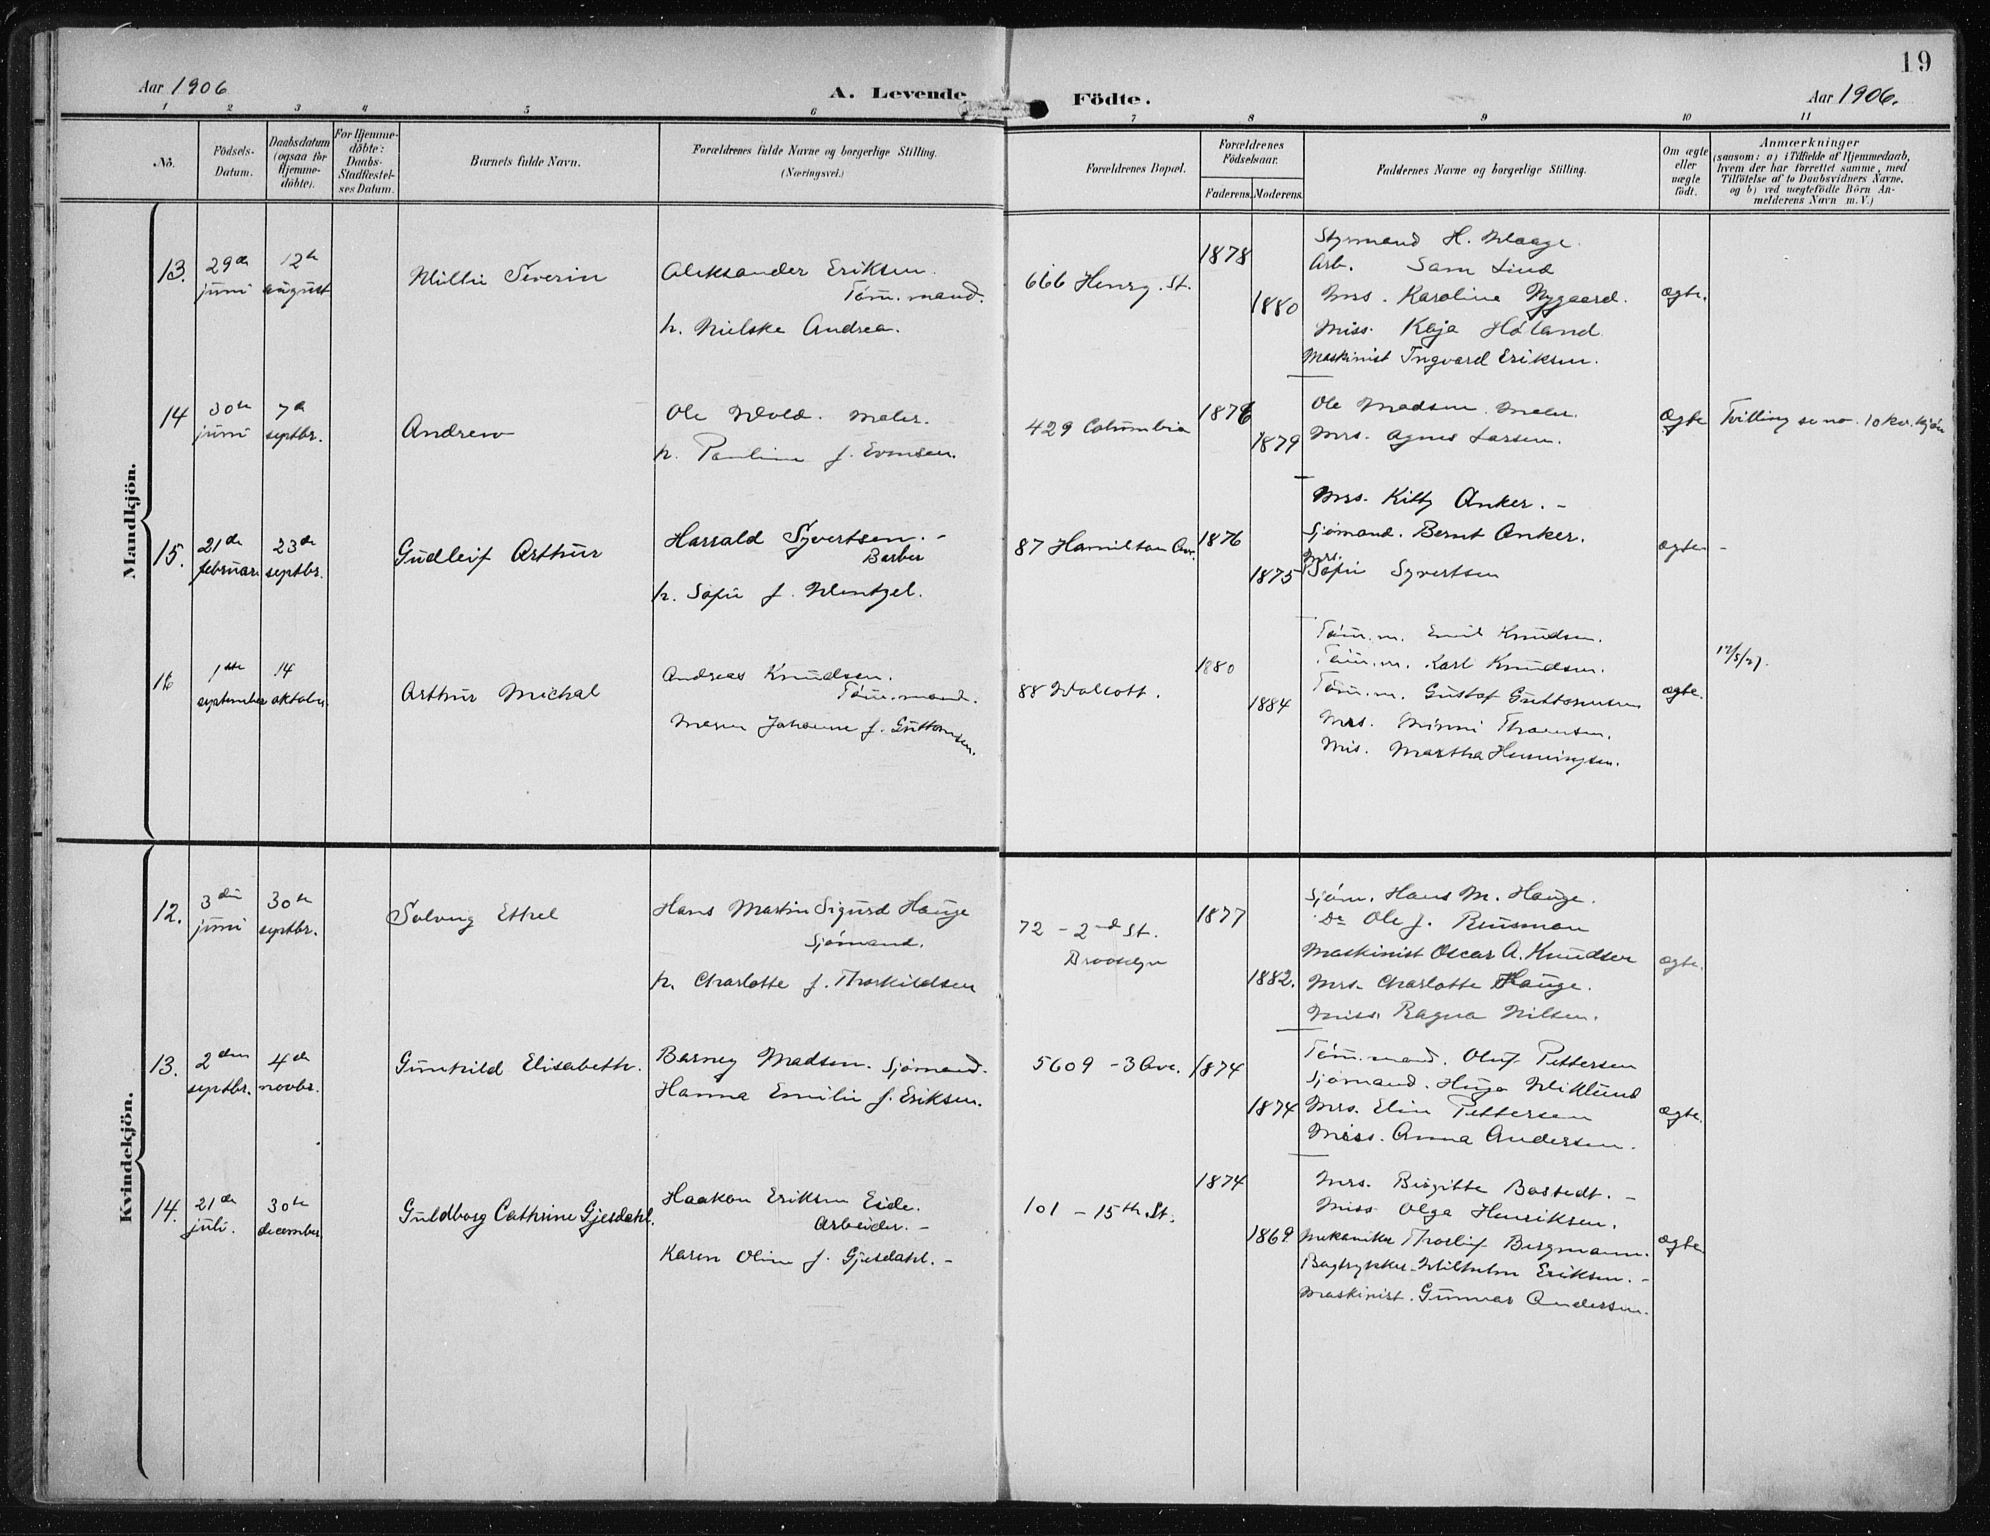 19
Aar 1906
A. Levende
Födte.
Aar 1906.
1 2 3 4 5 6 7 8 9 10 11
No.
Födsels-
Datum.
Daabsdatum
(ogsaa for
Hjemme-
döbte).
For Hjemme-
döbte:
Daabs-
Stadfæstel-
ses Datum.
Barnets fulde Navn.
Forældrenes fulde Navne og borgerlige Stilling.
(Næringsvei.)
Forældrenes Bopæl.
Forældrenes
Födselsaar.
Faderens. Moderens.
Faddernes Navne og borgerlige Stilling.
Om ægte
eller
uægte
födt.
Anmærkninger
(saasom: a) i Tilfælde af Hjemmedaab,
hvem der har forrettet samme, med
Tilföielse af to Daabsvidners Navne.
og b) ved uegtefödte Börn An-
melderens Navn m. V.)
Mandkjön.
13.
29de
juni
12te
august
Severin
Aleksander Eriksen.
Töm.mand.
h. Nielske Andrea.
666 Henry. St.
1878
1880
Styrmand H. Waage.
Arb. Sam Lind
Mrs. Karoline Nygaard.
Miss. Kaja Høland
Maskinist Ingvard Eriksen.
ægte.
14
30te
juni
7de
septbr.
Andrew
Ole Wold. Maler.
h. Pauline f. Evensen.
429 Columbia
1876
1879
Ole Madsen. Maler.
Mrs. Agnes Larsen.
Ægte
Tvilling se no. 10 kv.kjön
15.
21de
februar.
23de
septbr.
Gudleif Arthur
Harrald Syvertsen. -
Barber
h. Sofie f. Wentzel.
87 Hamilton Av.
1876
1875
Mrs. Kitty Anker. -
Sjömand. Bernt Anker.
Mrs.
Sofie Syvertsen
ægte -
16
1ste
september
14
oktober.
Arthur Michal
Andreas Knudsen.
Töm.mand.
Maren Johanne f. Guttormsen.
88 Wolcott.
1880
1884
Töm.m. Emil Knudsen.
Töm.m. Karl Knudsen.
Töm.m. Gustof Guttormsen
Mrs. Minni Thomsen.
Mis. Martha Henningsen.
ægte.
17/5/27.
Kvindekjön.
12.
3die
juni
30te
septbr.
Solveig Ethel
Hans Martin Sigurd Hauge
Sjömand.
h. Charlotte f. Thorkildsen
72 - 2nd St.
Brooklyn
1877
1882.
Sjöm. Hans M. Hauge.
Dr Ole J.
Maskinist Oscar A. Knudsen
Mrs. Charlotte Hauge.
Miss. Ragna Nilsen.
ægte.
13.
2den
septbr.
4de
novbr.
Gunhild Elisabeth.
Barney Madsen. Sjömand.
Hanna Emilie f. Eriksen.
5609 - 3 Ave.
1874
1874
Töm.mand. Oluf Pettersen
Sjömand. Hugo Wiklund
Mrs. Elin Pettersen
Miss. Anna Andersen.
ægte.
14.
21de
juli.
30te
december
Guldborg Cathrine Gjesdahl.
Haakon Eriksen Eide.
Arbeider. -
Karen Oline f. Gjesdahl. -
101 - 15th St.
1874
1869.
Mrs. Birgitte Bostedt. -
Miss Olga Henriksen.
Mekaniker Thorlif Bergmann.
Bogtrykker Wilhelm Eriksen. -
Maskinist. Gunnar Andersen.
ægte